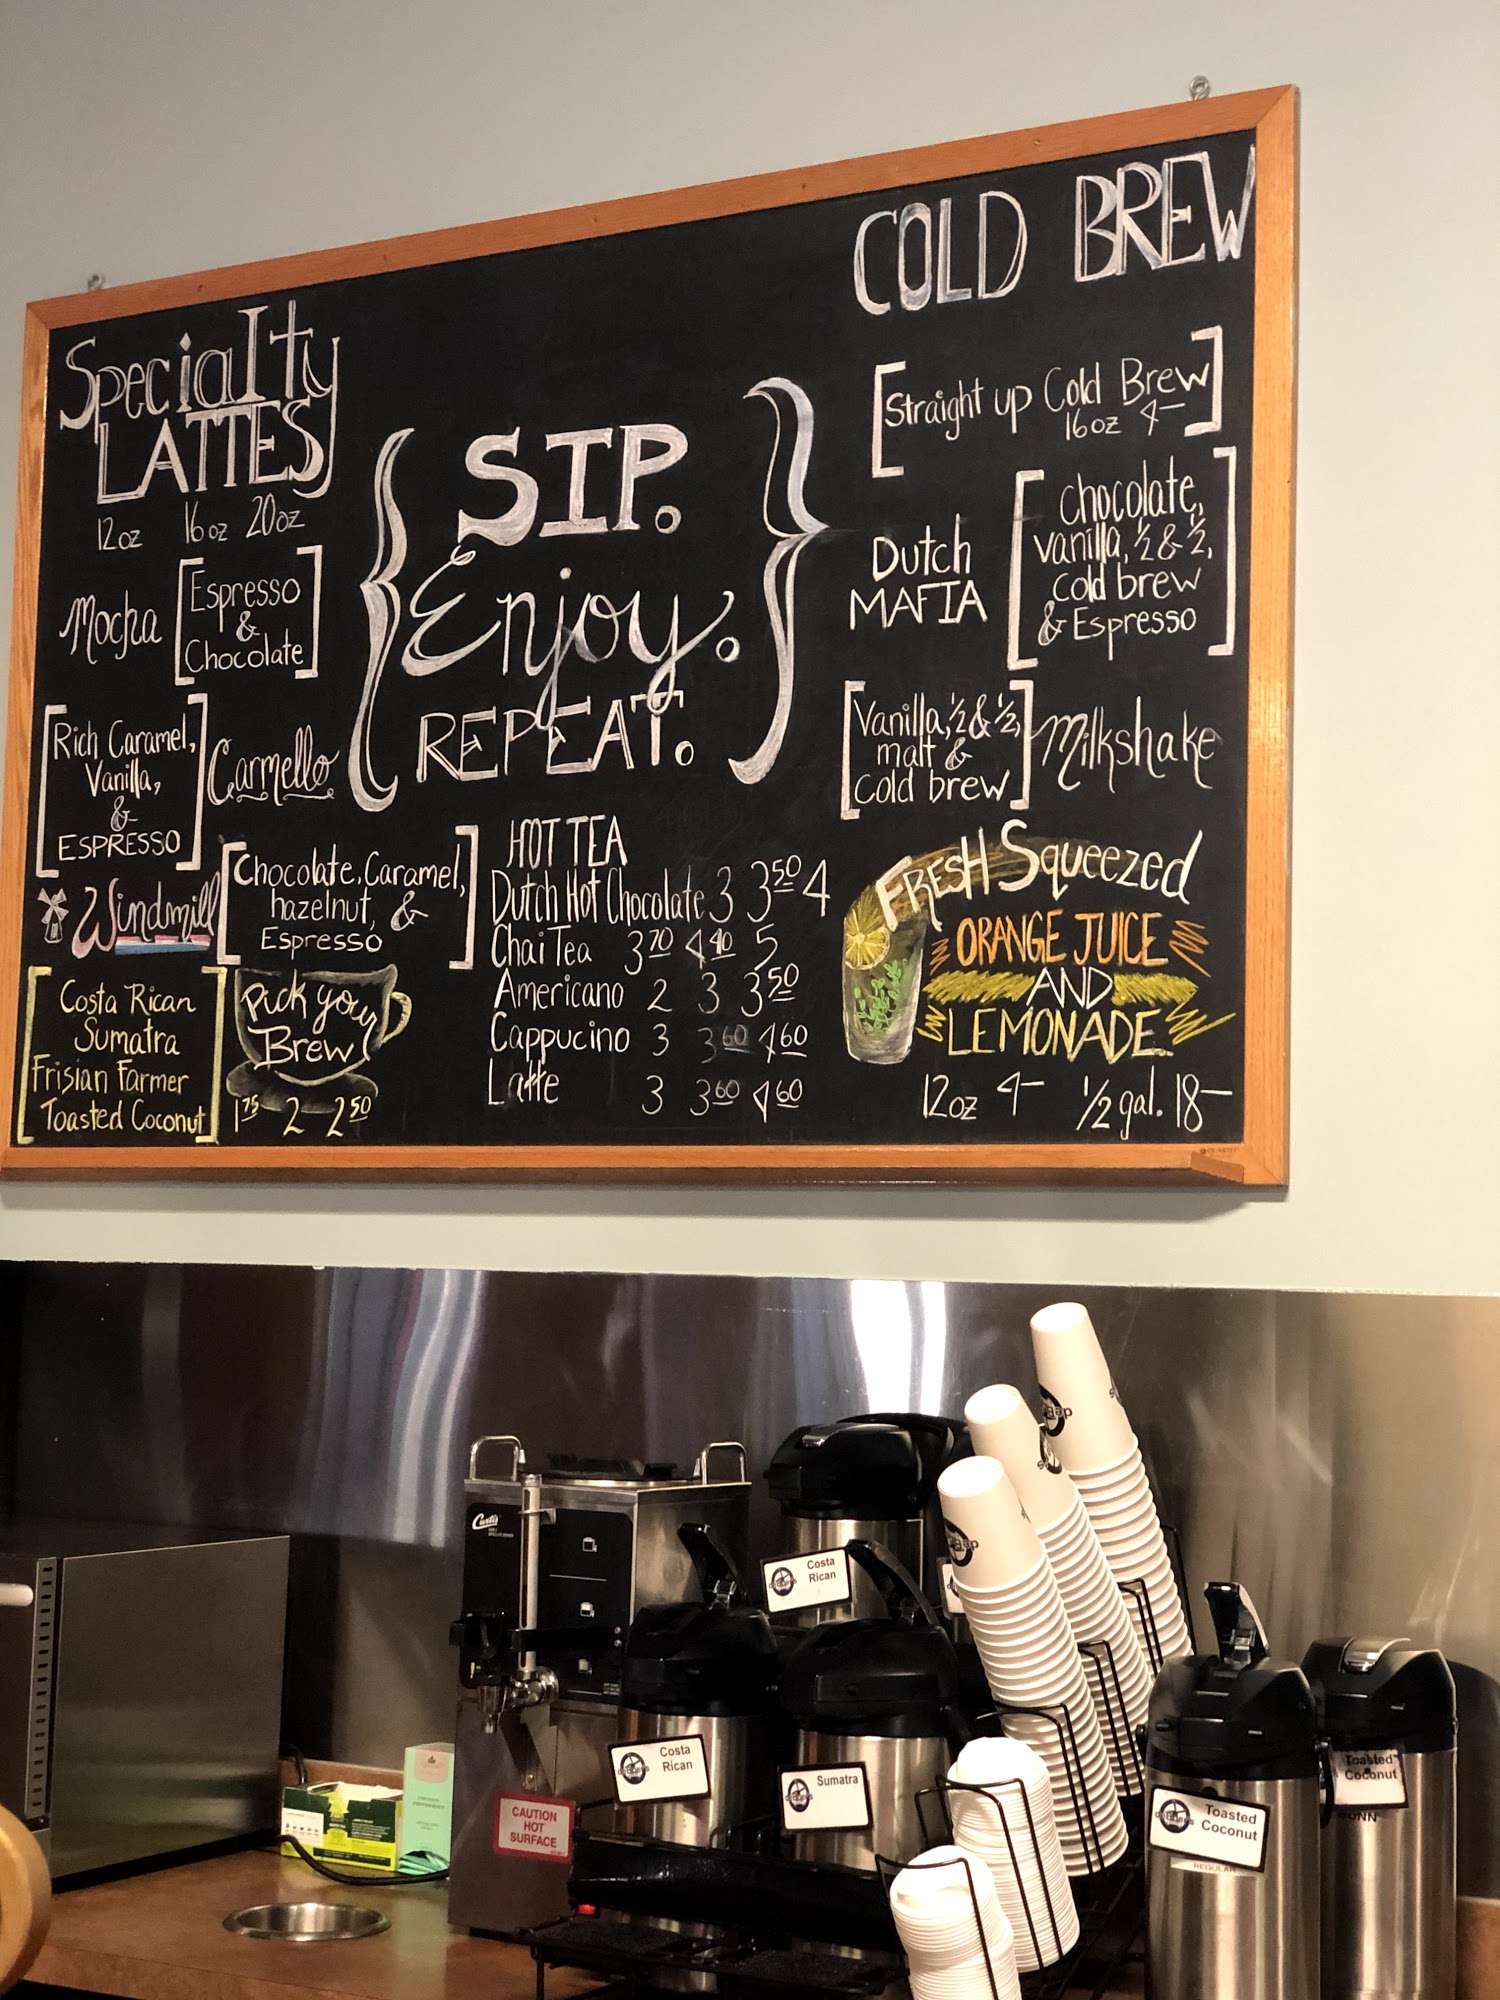 Specialty
LATTES
12oz 16oz 20oz
Mocha
Espresso
&
Chocolate
Rich Caramel,
Vanilla,
&
ESPRESSO
Carmello
Windmill
Chocolate, Caramel,
hazelnut, &
Espresso
Costa Rican
Sumatra
Frisian Farmer
Toasted Coconut
Pick your
Brew
1 75 2 2 50
SIP.
Enjoy.
REPEAT.
HOT TEA
Dutch Hot Chocolate 3 3 50 4
Chai Tea 3 70 4 40 5
Americano 2 3 3 50
Cappucino 3 3 60 4 60
Latte 3 3 60 4 60
COLD BREW
Straight up Cold Brew
16oz 4–
Dutch
MAFIA
Chocolate,
vanilla, ½ & ½,
cold brew
& Espresso
Vanilla, ½ & ½,
malt &
cold brew
Milkshake
FRESH Squeezed
ORANGE JUICE
AND
LEMONADE
12oz 4– ½ gal. 18–
Curtis
CAUTION
HOT
SURFACE
Costa
Rican
Costa
Rican
Sumatra
Toasted
Coconut
REGULAR
Toasted
Coconut
BUNN